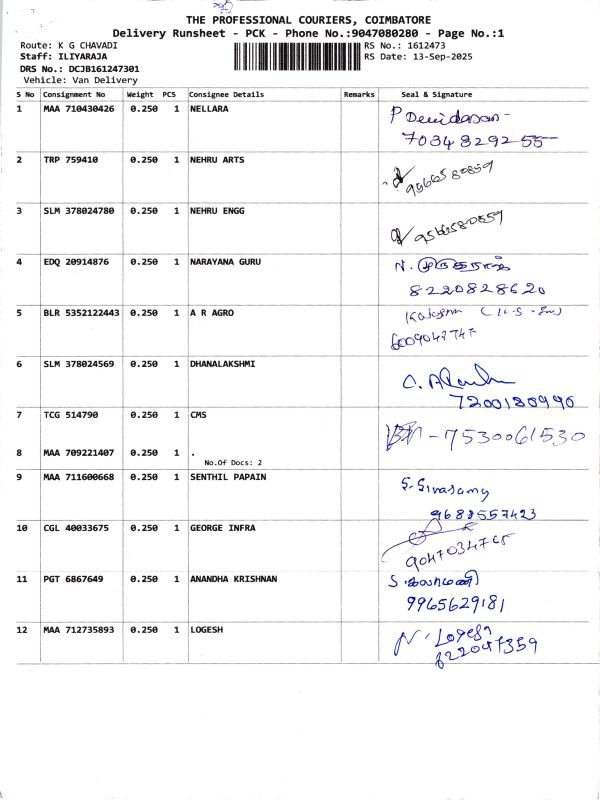 THE PROFESSIONAL COURIERS, COIMBATORE
Delivery Runsheet - PCK - Phone No.:9047080280 - Page No.:1
Route: K G CHAVADI
RS No.: 1612473
Staff: ILIYARAJA
RS Date: 13-Sep-2025
DRS No.: DCJB161247301
Vehicle: Van Delivery
S No Consignment No Weight PCS Consignee Details Remarks Seal & Signature
1 MAA 710430426 0.250 1 NELLARA
P Devidasan -
7034829255
2 TRP 759410 0.250 1 NEHRU ARTS
9566580859
3 SLM 378024780 0.250 1 NEHRU ENGG
9566580859
4 EDQ 20914876 0.250 1 NARAYANA GURU
N.
8220828620
5 BLR 5352122443 0.250 1 A R AGRO
6 SLM 378024569 0.250 1 DHANALAKSHMI
7200180990
7 TCG 514790 0.250 1 CMS
- 7530061530
8 MAA 709221407 0.250 1 .
No.Of Docs: 2
9 MAA 711600668 0.250 1 SENTHIL PAPAIN
S. Sivasamy
9688557423
10 CGL 40033675 0.250 1 GEORGE INFRA
11 PGT 6867649 0.250 1 ANANDHA KRISHNAN
9965629181
12 MAA 712735893 0.250 1 LOGESH
N. Logesh